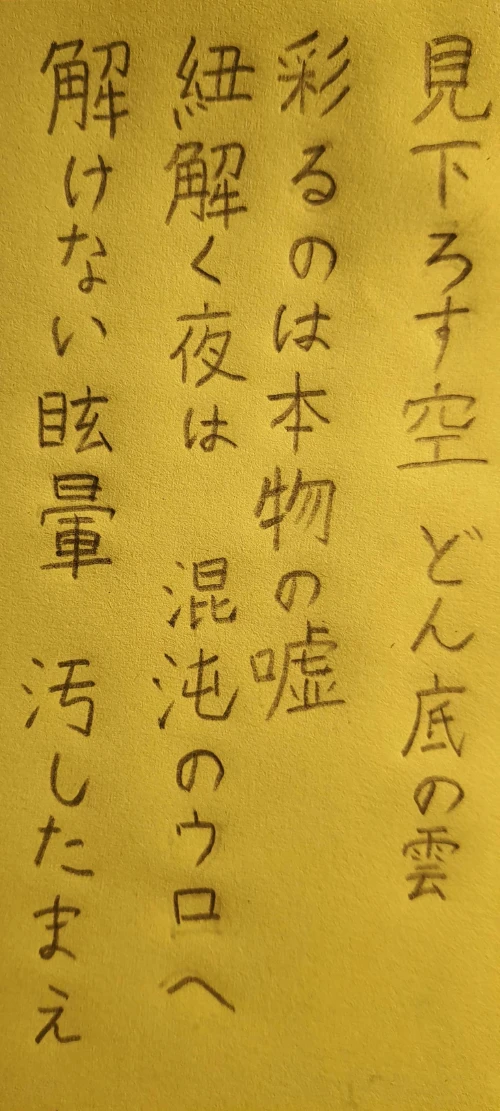 見下ろす空 どん底の雲
彩るのは本物の嘘
紐解く夜は 混沌のウロへ
解けない眩暈 汚したまえ